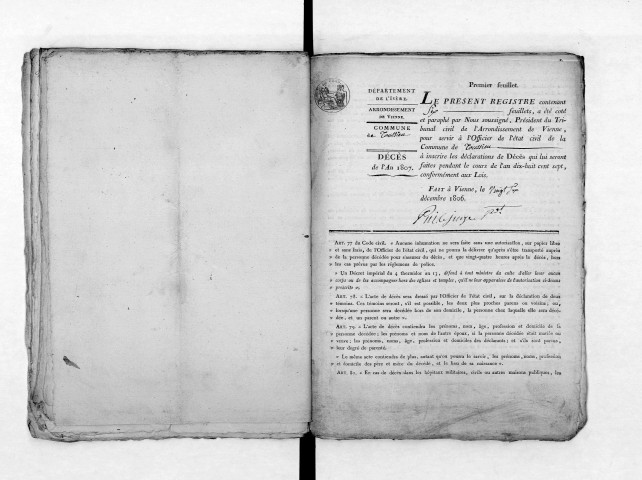 Premier feuillet.
DÉPARTEMENT
DE L'ISÈRE.
ARRONDISSEMENT
DE VIENNE.
COMMUNE
de Toussieu
DÉCÈS
de l'An 1807.
LE PRÉSENT REGISTRE contenant
Six feuillets, a été coté
et paraphé par Nous soussigné, Président du Tri-
bunal civil de l'Arrondissement de Vienne,
pour servir à l'Officier de l'état civil de la
Commune de Toussieu
à inscrire les déclarations de Décès qui lui seront
faites pendant le cours de l'an dix-huit cent sept,
conformément aux Lois.
FAIT à Vienne, le vingt six
décembre 1806.
ART. 77 du Code civil. « Aucune inhumation ne sera faite sans une autorisation, sur papier libre
» et sans frais, de l'Officier de l'état civil, qui ne pourra la délivrer qu'après s'être transporté auprès
» de la personne décédée pour s'assurer du décès, et que vingt-quatre heures après le décès, hors
» les cas prévus par les réglemens de police.
» Un Décret impérial du 4 thermidor an 13, défend à tout ministre du culte d'aller lever aucun
» corps ou de les accompagner hors des églises et temples, qu'il ne leur apparaisse de l'autorisation ci-dessus
» prescrite ».
ART. 78. « L'acte de décès sera dressé par l'Officier de l'état civil, sur la déclaration de deux
» témoins. Ces témoins seront, s'il est possible, les deux plus proches parens ou voisins; ou,
» lorsqu'une personne sera décédée hors de son domicile, la personne chez laquelle elle sera décé-
» dée, et un parent ou autre ».
ART. 79. « L'acte de décès contiendra les prénoms, nom, âge, profession et domicile de la
» personne décédée; les prénoms et nom de l'autre époux, si la personne décédée était mariée ou
» veuve; les prénoms, noms, âges, professions et domiciles des déclarans; et s'ils sont parens,
» leur degré de parenté.
» Le même acte contiendra de plus, autant qu'on pourra le savoir, les prénoms, noms, profession
» et domicile des père et mère du décédé, et le lieu de sa naissance ».
ART. 80. « En cas de décès dans les hôpitaux militaires, civils ou autres maisons publiques, les